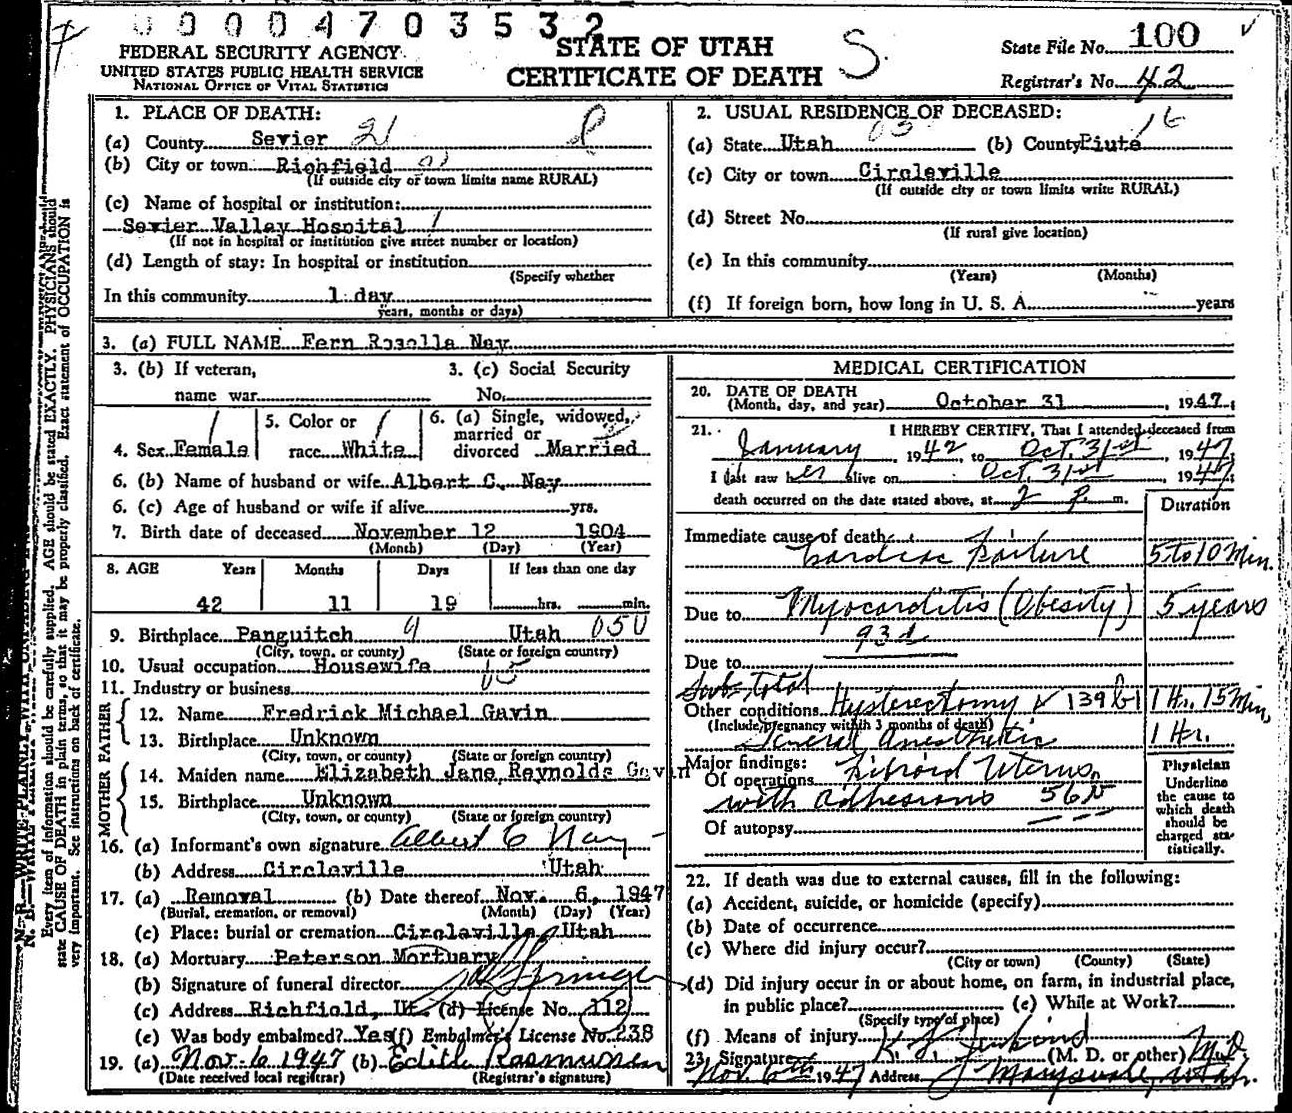 00004703532
FEDERAL SECURITY AGENCY
UNITED STATES PUBLIC HEALTH SERVICE
NATIONAL OFFICE OF VITAL STATISTICS
STATE OF UTAH
CERTIFICATE OF DEATH
S.
State File No. 100
Registrar's No. 42
1. PLACE OF DEATH:
(a) County Sevier 21
(b) City or town Richfield
(If outside city or town limits name RURAL)
(c) Name of hospital or institution:
Sevier Valley Hospital 1
(If not in hospital or institution give street number or location)
(d) Length of stay: In hospital or institution
(Specify whether
In this community 1 day
years, months or days)
2. USUAL RESIDENCE OF DECEASED:
(a) State Utah (b) County Piute 16
(c) City or town Circleville
(If outside city or town limits write RURAL)
(d) Street No.
(If rural give location)
(e) In this community
(Years) (Months)
(f) If foreign born, how long in U. S. A. years
3. (a) FULL NAME Fern Rozella Nay
3. (b) If veteran, name war
3. (c) Social Security No.
4. Sex Female
5. Color or race White
6. (a) Single, widowed, married or divorced Married
6. (b) Name of husband or wife Albert C. Nay
6. (c) Age of husband or wife if alive yrs.
7. Birth date of deceased November 12 1904
(Month) (Day) (Year)
8. AGE Years Months Days If less than one day
42 11 19 hrs. min.
9. Birthplace Panguitch 9 Utah 050
(City, town, or county) (State or foreign country)
10. Usual occupation Housewife
11. Industry or business
FATHER
12. Name Fredrick Michael Gavin
13. Birthplace Unknown
(City, town, or county) (State or foreign country)
MOTHER
14. Maiden name Elizabeth Jane Reynolds Gavin
15. Birthplace Unknown
(City, town, or county) (State or foreign country)
16. (a) Informant's own signature Albert C Nay
(b) Address Circleville Utah
17. (a) Removal (b) Date thereof Nov. 6, 1947
(Burial, cremation, or removal) (Month) (Day) (Year)
(c) Place: burial or cremation Circleville, Utah
18. (a) Mortuary Peterson Mortuary
(b) Signature of funeral director
(c) Address Richfield, Ut. (d) License No. 112
(e) Was body embalmed? Yes (f) Embalmer's License No. 238
19. (a) Nov-6 1947 (b) Edith Rasmussen
(Date received local registrar) (Registrar's signature)
MEDICAL CERTIFICATION
20. DATE OF DEATH
(Month, day, and year) October 31, 1947
21. I HEREBY CERTIFY, That I attended deceased from
January, 1942, to Oct. 31st, 1947
I last saw her alive on Oct. 31st 1947
death occurred on the date stated above, at 2 P. m.
Duration
Immediate cause of death
Cardiac Failure 5 to 10 Min.
Due to Myocarditis (Obesity) 5 years
93d
Due to
Sub-total
Other conditions Hysterectomy 139 b1 1 Hr. 15 Min.
(Include pregnancy within 3 months of death)
General Anesthetic 1 Hr.
Major findings:
Of operations Fibroid Uterus
with adhesions 56
Of autopsy
Physician
Underline the cause to which death should be charged statistically.
22. If death was due to external causes, fill in the following:
(a) Accident, suicide, or homicide (specify)
(b) Date of occurrence
(c) Where did injury occur?
(City or town) (County) (State)
(d) Did injury occur in or about home, on farm, in industrial place,
in public place? (e) While at Work?
(Specify type of place)
(f) Means of injury
23. Signature (M. D. or other) M.D.
Nov. 6th 1947 Address Marysvale, Utah.
N. B.—WRITE PLAINLY, WITH UNFADING
Every item of information should be carefully supplied. AGE should be stated EXACTLY. PHYSICIANS should
state CAUSE OF DEATH in plain terms, so that it may be properly classified. Exact statement of OCCUPATION is
very important. See instructions on back of certificate.